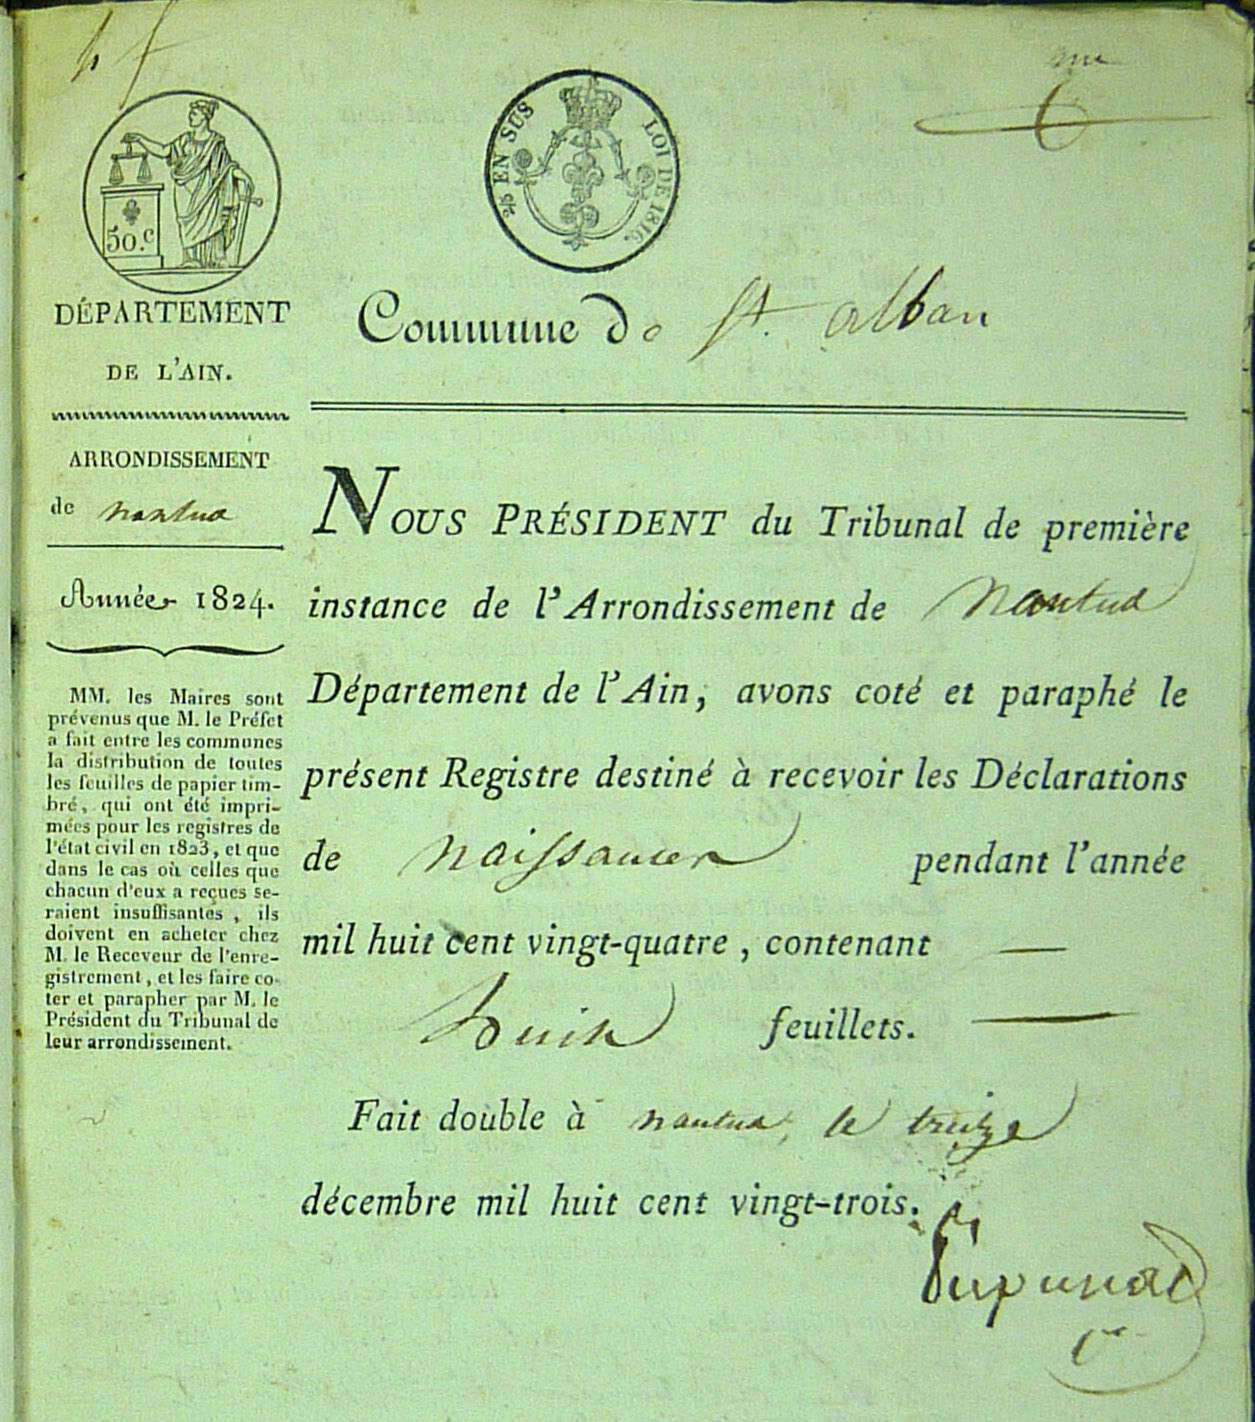 50.c
2/5 EN SUS
LOI DE 1816.
DÉPARTEMENT
DE L'AIN.
Commune de St. alban
ARRONDISSEMENT
de nantua
Année 1824.
MM. les Maires sont
prévenus que M. le Préfet
a fait entre les communes
la distribution de toutes
les feuilles de papier tim-
bré, qui ont été impri-
mées pour les registres de
l'état civil en 1823, et que
dans le cas où celles que
chacun d'eux a reçues se-
raient insuffisantes, ils
doivent en acheter chez
M. le Receveur de l'enre-
gistrement, et les faire co-
ter et parapher par M. le
Président du Tribunal de
leur arrondissement.
NOUS PRÉSIDENT du Tribunal de première
instance de l'Arrondissement de Nantua
Département de l'Ain, avons coté et paraphé le
présent Registre destiné à recevoir les Déclarations
de naissances pendant l'année
mil huit cent vingt-quatre, contenant —
huit feuillets. —
Fait double à nantua, le treize
décembre mil huit cent vingt-trois.